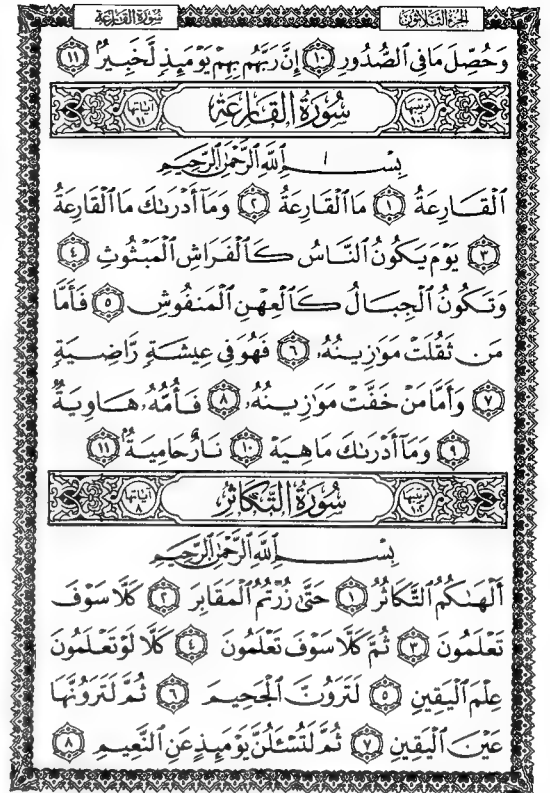 سُورَةُ القَارِعَة الجُزءُ الثَّلَاثُون
وَحُصِّلَ مَا فِي ٱلصُّدُورِ ١٠ إِنَّ رَبَّهُم بِهِمْ يَوْمَئِذٍ لَّخَبِيرٌۢ ١١
سُورَةُ القَارِعَةِ
بِسْمِ ٱللَّهِ ٱلرَّحْمَٰنِ ٱلرَّحِيمِ
ٱلْقَارِعَةُ ١ مَا ٱلْقَارِعَةُ ٢ وَمَآ أَدْرَىٰكَ مَا ٱلْقَارِعَةُ
٣ يَوْمَ يَكُونُ ٱلنَّاسُ كَٱلْفَرَاشِ ٱلْمَبْثُوثِ ٤
وَتَكُونُ ٱلْجِبَالُ كَٱلْعِهْنِ ٱلْمَنفُوشِ ٥ فَأَمَّا
مَن ثَقُلَتْ مَوَٰزِينُهُۥ ٦ فَهُوَ فِي عِيشَةٍ رَّاضِيَةٍ
٧ وَأَمَّا مَنْ خَفَّتْ مَوَٰزِينُهُۥ ٨ فَأُمُّهُۥ هَاوِيَةٌ
٩ وَمَآ أَدْرَىٰكَ مَا هِيَهْ ١٠ نَارٌ حَامِيَةٌۢ ١١
ترتيبها ١٠٢ سُورَةُ التَّكَاثُرِ آياتها ٨
بِسْمِ ٱللَّهِ ٱلرَّحْمَٰنِ ٱلرَّحِيمِ
أَلْهَىٰكُمُ ٱلتَّكَاثُرُ ١ حَتَّىٰ زُرْتُمُ ٱلْمَقَابِرَ ٢ كَلَّا سَوْفَ
تَعْلَمُونَ ٣ ثُمَّ كَلَّا سَوْفَ تَعْلَمُونَ ٤ كَلَّا لَوْ تَعْلَمُونَ
عِلْمَ ٱلْيَقِينِ ٥ لَتَرَوُنَّ ٱلْجَحِيمَ ٦ ثُمَّ لَتَرَوُنَّهَا
عَيْنَ ٱلْيَقِينِ ٧ ثُمَّ لَتُسْـَٔلُنَّ يَوْمَئِذٍ عَنِ ٱلنَّعِيمِ ٨